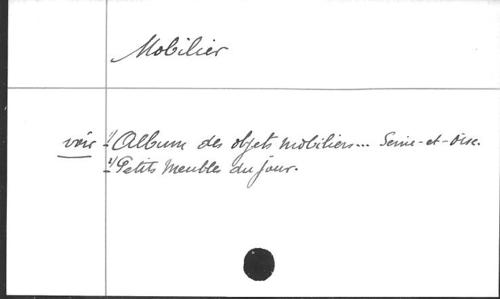 Mobilier
voir 1/ Album des objets mobiliers... Seine-et-Oise.
2/ Petits Meubles du jour.